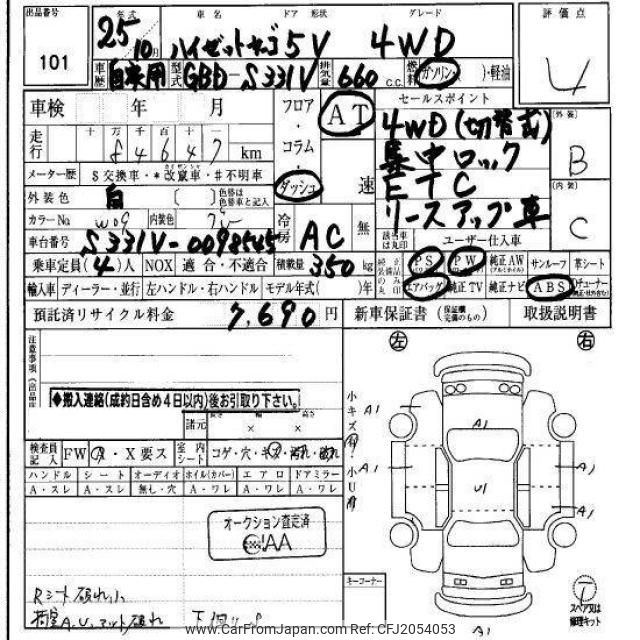 出品番号 年式 車名 ドア 形状 グレード 評価点
101 25 10月 ハイゼットカーゴ 5V 4WD 4
車歴 自家用 型式 GBD-S331V 排気量 660 C.C. 燃料 ガソリン・( )・軽油
車検 年 月 フロア・コラム・ダッシュ AT 速 セールスポイント
走行 十 万 千 百 十 一
84647 km
4WD(切替式)
集中ロック
ETC
リースアップ車
(外装) B
(内装) C
メーター歴 $交換車・*改竄車・#不明車
外装色 白 ( ) 色替は色替車と記入
カラーNo. W09 内装色 グレー 冷房 AC 無
該当車は丸印 ユーザー仕入車
車台番号 S331V-0098545
乗車定員 (4)人 NOX 適合・不適合 積載量 350 kg
純正装備品のみ丸印 PS PW 純正AW (アルミホイル) サンルーフ 革シート
輸入車 ディーラー・並行 左ハンドル・右ハンドル モデル年式( )年
エアバッグ 純正TV 純正ナビ ABS
預託済リサイクル料金 7,690 円 新車保証書 (保証書完備のもの) 取扱説明書
注意事項
左 右
◆搬入連絡(成約日含め4日以内)後お引取り下さい。
諸元 長さ 幅 高さ
× ×
小キズ 小U
A1 A1 A1 A1 A1 U1 A1
検査員記入 FW A・X要ス 室内シート コゲ・穴・キズ・汚れ・破れ
ハンドル シート オーディオ ホイル(カバー) エアロ ドアミラー
A・スレ A・スレ 無し・穴 A・ワレ A・ワレ A・ワレ
オークション査定済
AA
キーコーナー
Rシート破れ小
荷室A、U、マット破れ
スペア又は修理キット
www.CarFromJapan.com Ref: CFJ2054053